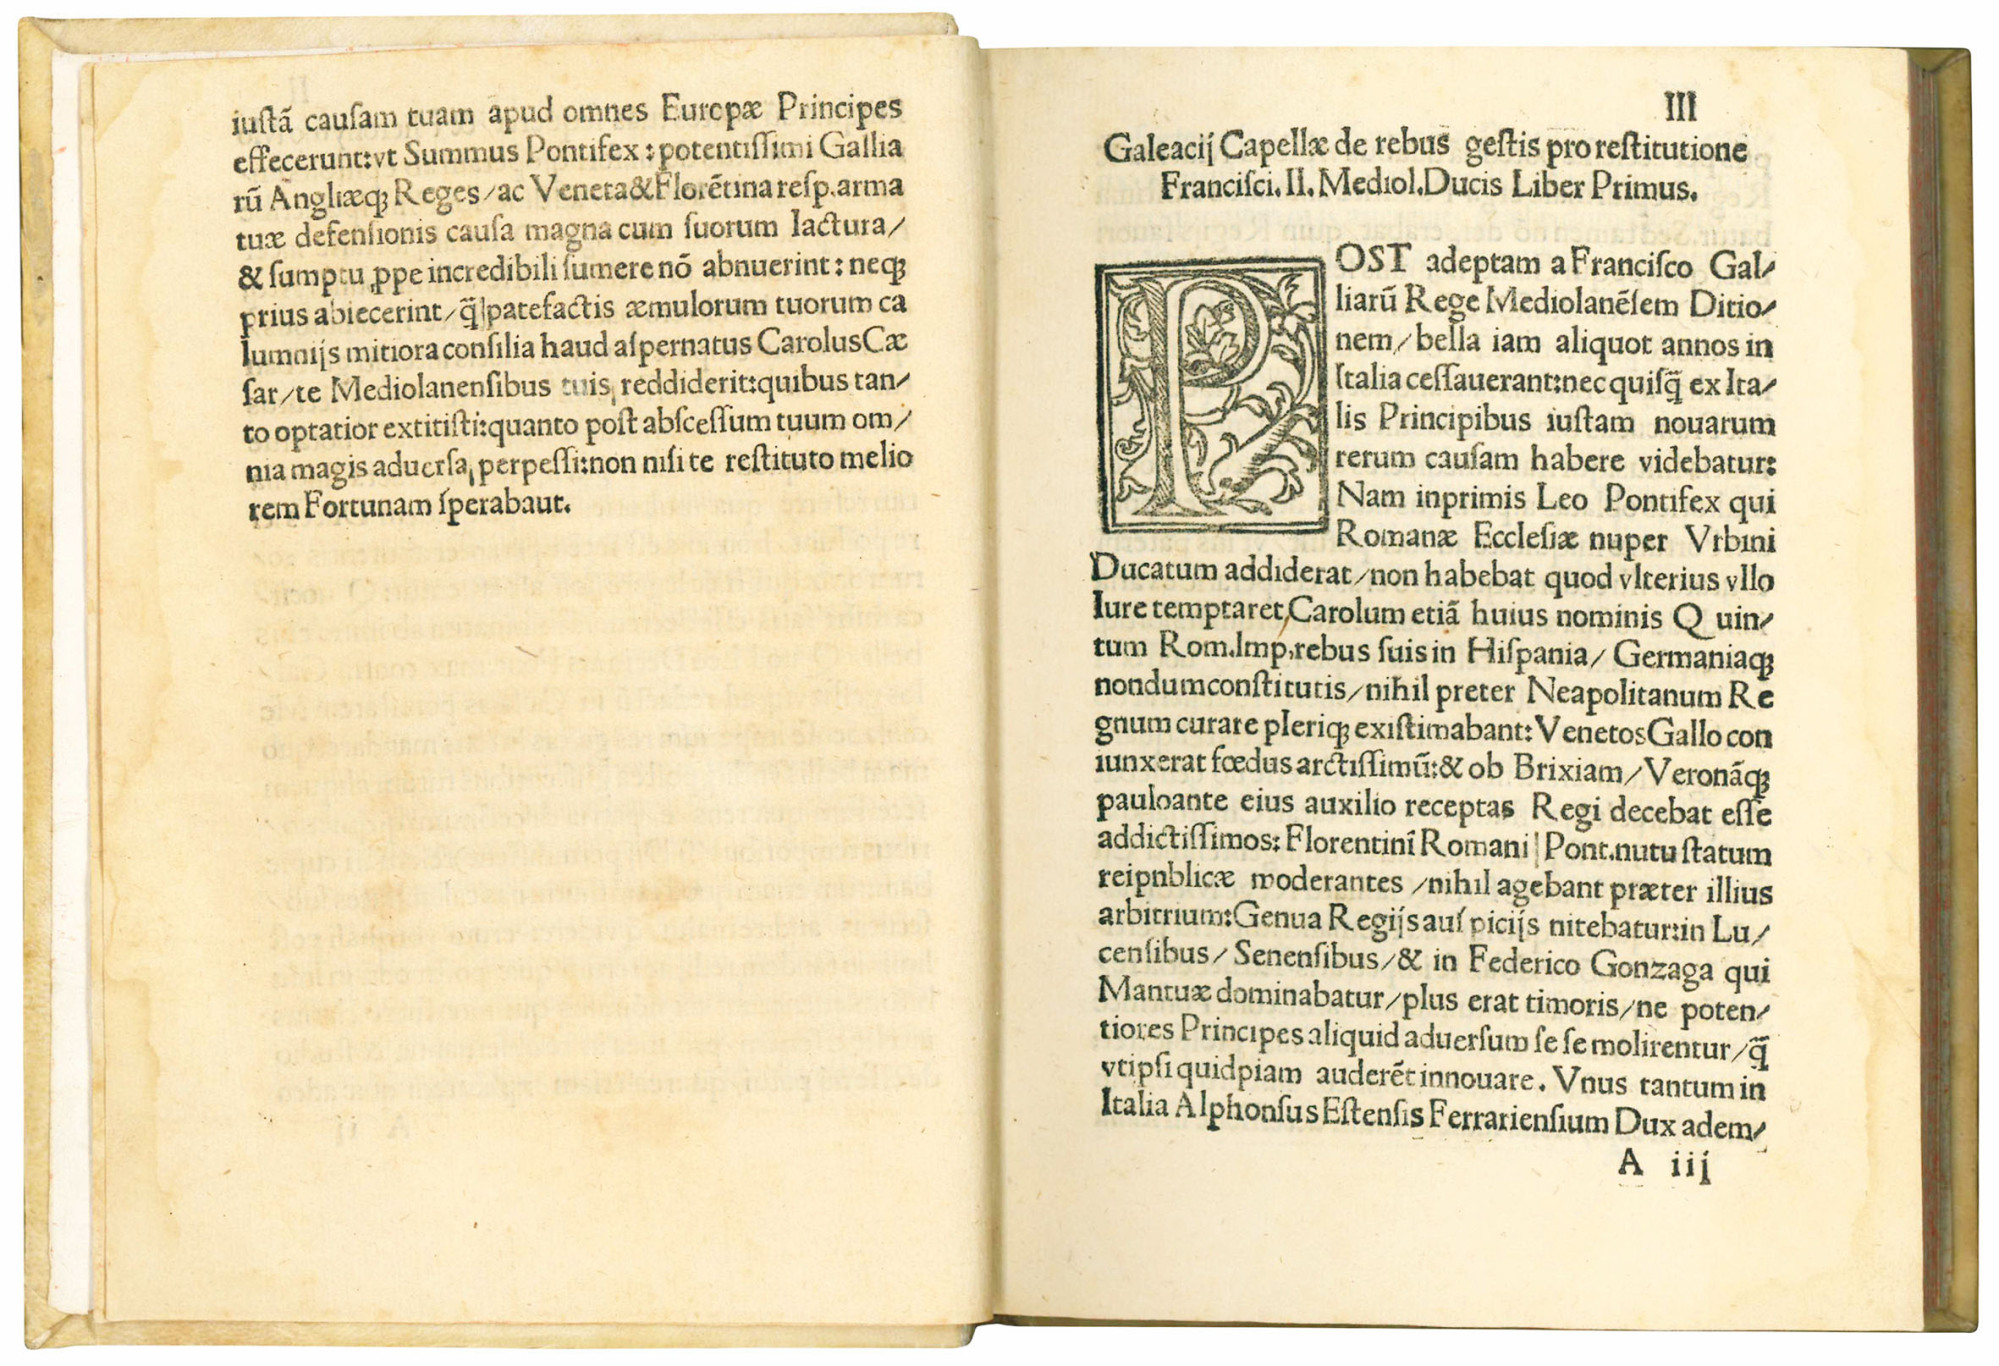 iuſtã cauſam tuam apud omnes Europæ Principes
effecerunt:vt Summus Pontifex : potentiſſimi Gallia
rũ Angliæq; Reges/ac Veneta&Florẽtina reſp.arma
tuæ defenſionis cauſa magna cum ſuorum Iactura/
& ſumptu ꝓpe incredibili ſumere nõ abnuerint : neq;
prius abiecerint/q̃|patefactis æmulorum tuorum ca
lumnijs mitiora conſilia haud aſpernatus Carolus Cæ
ſar/te Mediolanenſibus tuis reddiderit:quibus tan/
to optatior extitiſti:quanto poſt abſceſſum tuum om/
nia magis aduerſa perpeſſi:non niſi te reſtituto melio
rem Fortunam ſperabaut.
III
Galeacij Capellæ de rebus geſtis pro reſtitutione
Franciſci.II.Mediol.Ducis Liber Primus.
POST adeptam a Franciſco Gal/
liarũ Rege Mediolanẽſem Ditio/
nem/bella iam aliquot annos in
Italia ceſſauerant:nec quiſq̃ ex Ita/
lis Principibus iuſtam nouarum
rerum cauſam habere videbatur:
Nam inprimis Leo Pontifex qui
Romanæ Eccleſiæ nuper Vrbini
Ducatum addiderat/non habebat quod vlterius vllo
Iure temptaret,Carolum etiã huius nominis Quin/
tum Rom.Imp.rebus ſuis in Hiſpania/Germaniaq;
nondum conſtitutis/nihil preter Neapolitanum Re
gnum curare pleriq; exiſtimabant:Venetos Gallo con
iunxerat fœdus arctiſſimũ:& ob Brixiam/Veronãq;
pauloante eius auxilio receptas Regi decebat eſſe
addictiſſimos:Florentini Romani|Pont.nutu ſtatum
reipnblicæ moderantes/nihil agebant præter illius
arbitrium:Genua Regijs auſpicijs nitebatur:in Lu/
cenſibus/Senenſibus/& in Federico Gonzaga qui
Mantuæ dominabatur/plus erat timoris/ne poten/
tiores Principes aliquid aduerſum ſe ſe molirentur/q̃
vt ipſi quidpiam auderẽt innouare. Vnus tantum in
Italia Alphonſus Eſtenſis Ferrarienſium Dux adem/
A iij